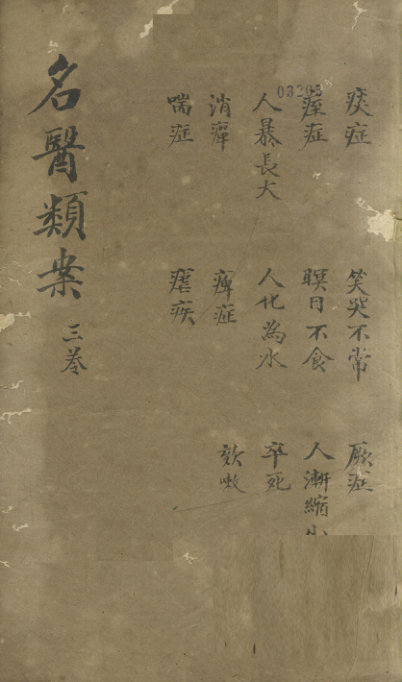 痰症 笑哭不常 厥症
痓症 瞑目不食 人漸縮小
人暴長大 人化為水 卒死
消癉 痺症 欬嗽
喘症 瘧疾
名醫類案 三卷
03205